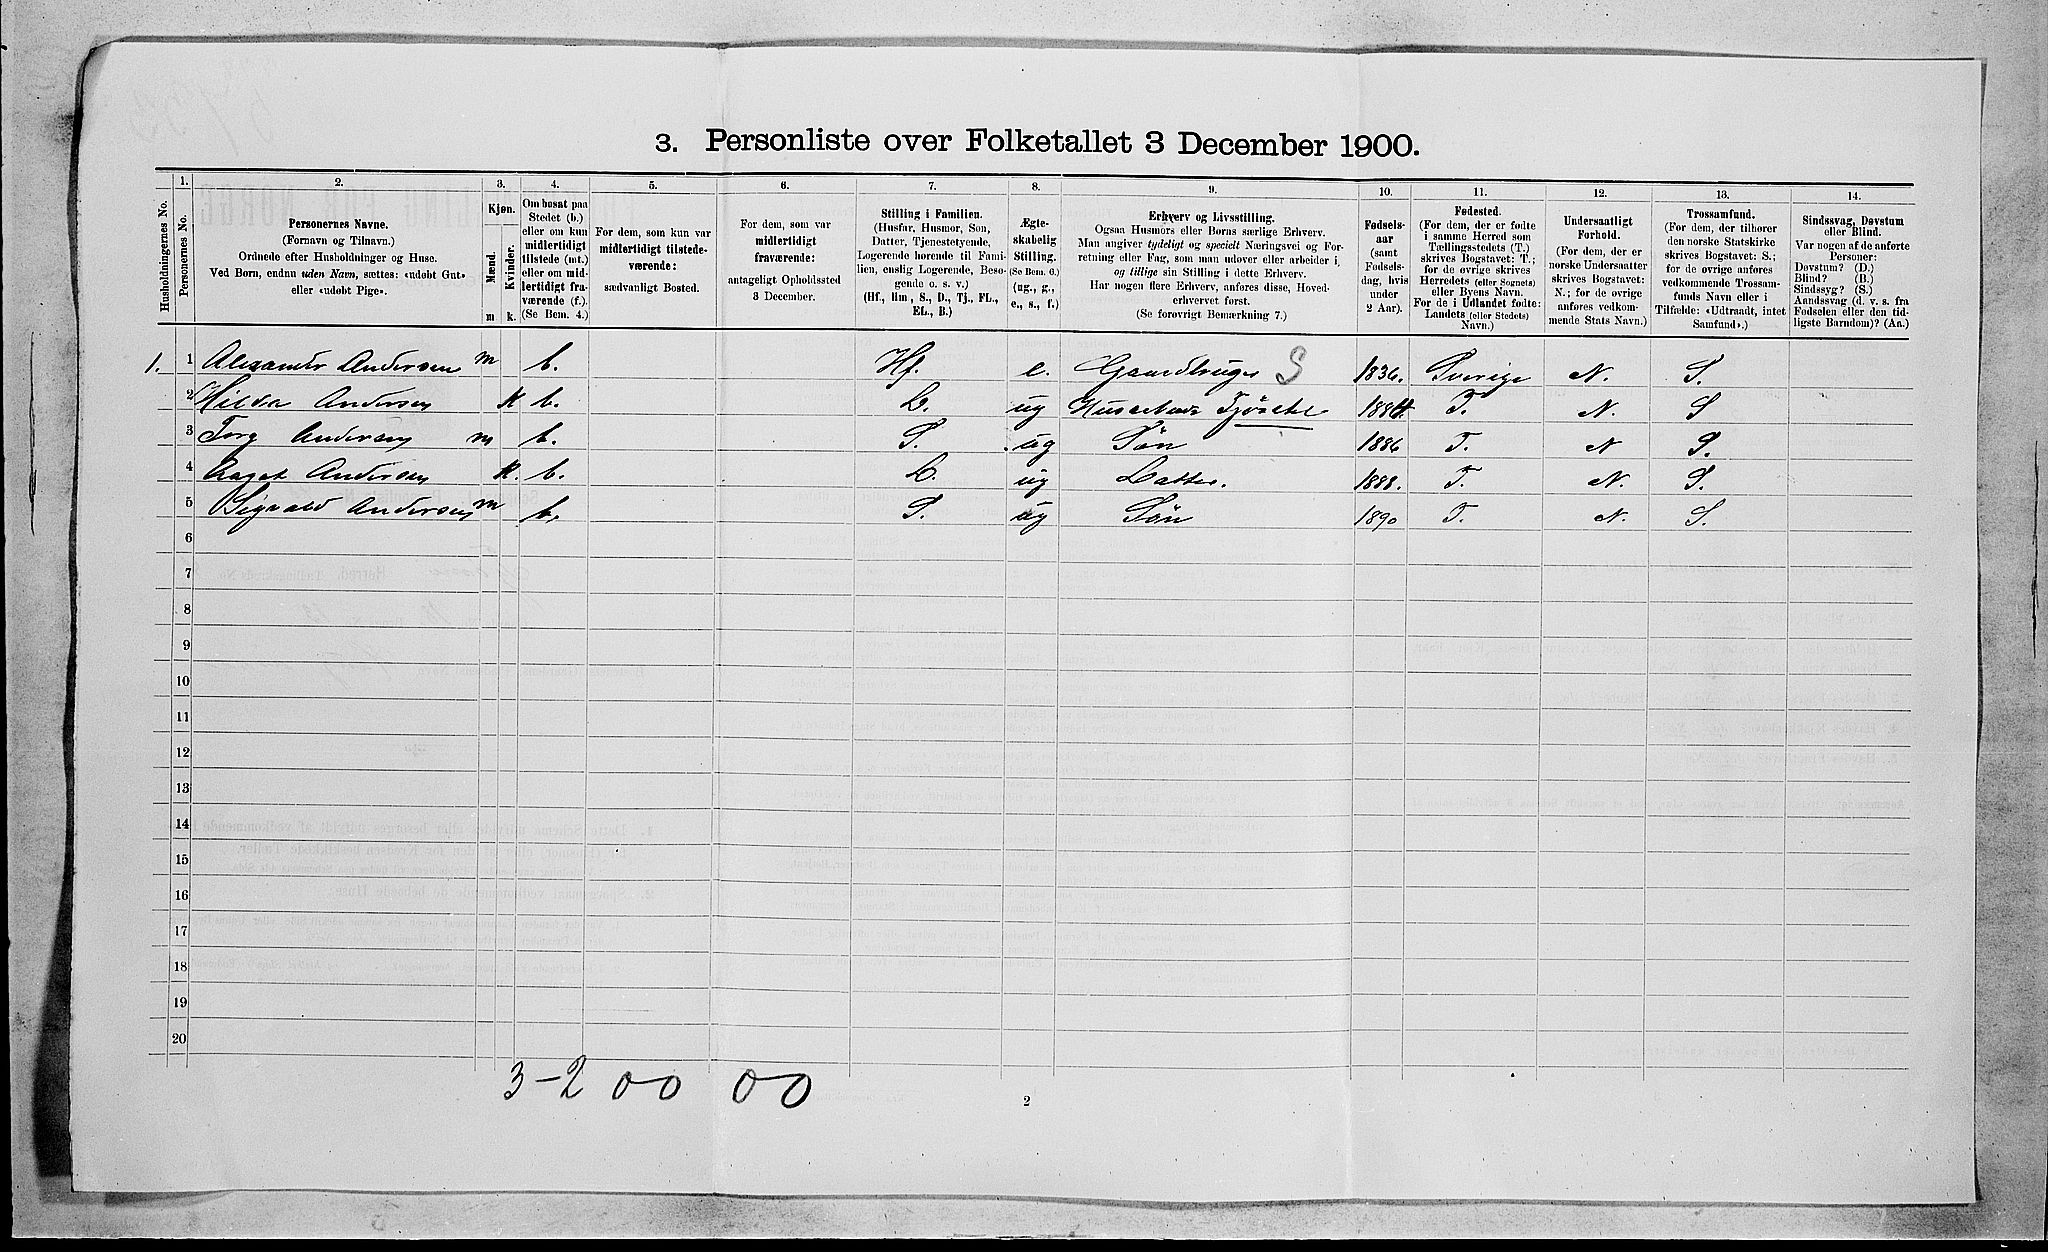 3. Personliste over Folketallet 3 December 1900.
1. 2. 3. 4. 5. 6. 7. 8. 9. 10. 11. 12. 13. 14.
Husholdningernes No.
Personernes No.
Personernes Navne.
(Fornavn og Tilnavn.)
Ordnede efter Husholdninger og Huse.
Ved Børn, endnu uden Navn, sættes: «udøbt Gut»
eller «udøbt Pige».
Kjøn.
Mænd.
Kvinder.
m k.
Om bosat paa
Stedet (b.)
eller om kun
midlertidigt
tilstede (mt.)
eller om mid-
lertidigt fra-
værende (f.).
(Se Bem. 4.)
For dem, som kun var
midlertidigt tilstede-
værende:
sædvanligt Bosted.
For dem, som var
midlertidigt
fraværende:
antageligt Opholdssted
3 December.
Stilling i Familien.
(Husfar, Husmor, Søn,
Datter, Tjenestetyende,
Logerende hørende til Fami-
lien, enslig Logerende, Besø-
gende o. s. v.)
(Hf., Hm., S., D., Tj., FL.,
EL., B.)
Ægte-
skabelig
Stilling.
(Se Bem. 6.)
(ug., g.,
e., s., f.)
Erhverv og Livsstilling.
Ogsaa Husmors eller Børns særlige Erhverv.
Man angiver tydeligt og specielt Næringsvei og For-
retning eller Fag, som man udover eller arbeider i,
og tillige sin Stilling i dette Erhverv.
Har nogen flere Erhverv, anføres disse, Hoved-
erhvervet først.
(Se forøvrigt Bemærkning 7.)
Fødsels-
aar
(samt
Fødsels-
dag, hvis
under
2 Aar).
Fødested.
(For dem, der er fødte
i samme Herred som
Tællingsstedet (T.)
skrives Bogstavet: T.;
for de øvrige skrives
Herredets (eller Sognets)
eller Byens Navn.
For de i Udlandet fødte:
Landets (eller Stedets)
Navn.)
Undersaatligt
Forhold.
(For dem, der er
norske Undersaatter
skrives Bogstavet:
N.; for de øvrige
anføres vedkom-
mende Stats Navn.)
Trossamfund.
(For dem, der tilhører
den norske Statskirke
skrives Bogstavet: S.;
for de øvrige anføres
vedkommende Trossam-
funds Navn eller i
Tilfælde: «Udtraadt, intet
Samfund».)
Sindssvag, Døvstum
eller Blind.
Var nogen af de anførte
Personer:
Døvstum? (D.)
Blind? (B.)
Sindssyg? (S.)
Aandssvag (d. v. s. fra
Fødselen eller den tid-
ligste Barndom)? (Aa.)
1. 1 Alexander Andersen m b. Hf. e. Gaardbruger S 1836. Sverige N. S.
2 Hilda Andersen k b. D. ug 1884. T. N. S
3 Andersen m b. S. ug Søn 1886 T. N S.
4 Aagot Andersen k. b. D. ug Datter. 1888. T. N. S.
5 Sigvald Andersen m b. S. ug Søn 1890 T. N. S.
6
7
8
9
10
11
12
13
14
15
16
17
18
19
20
3-2 00 00
2